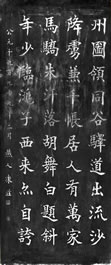 州圖領同谷驛道出流沙
降虜兼千帳居人有萬家
馬驕朱汗落胡舞白題斜
年少臨洮子西來亦自誇
公元